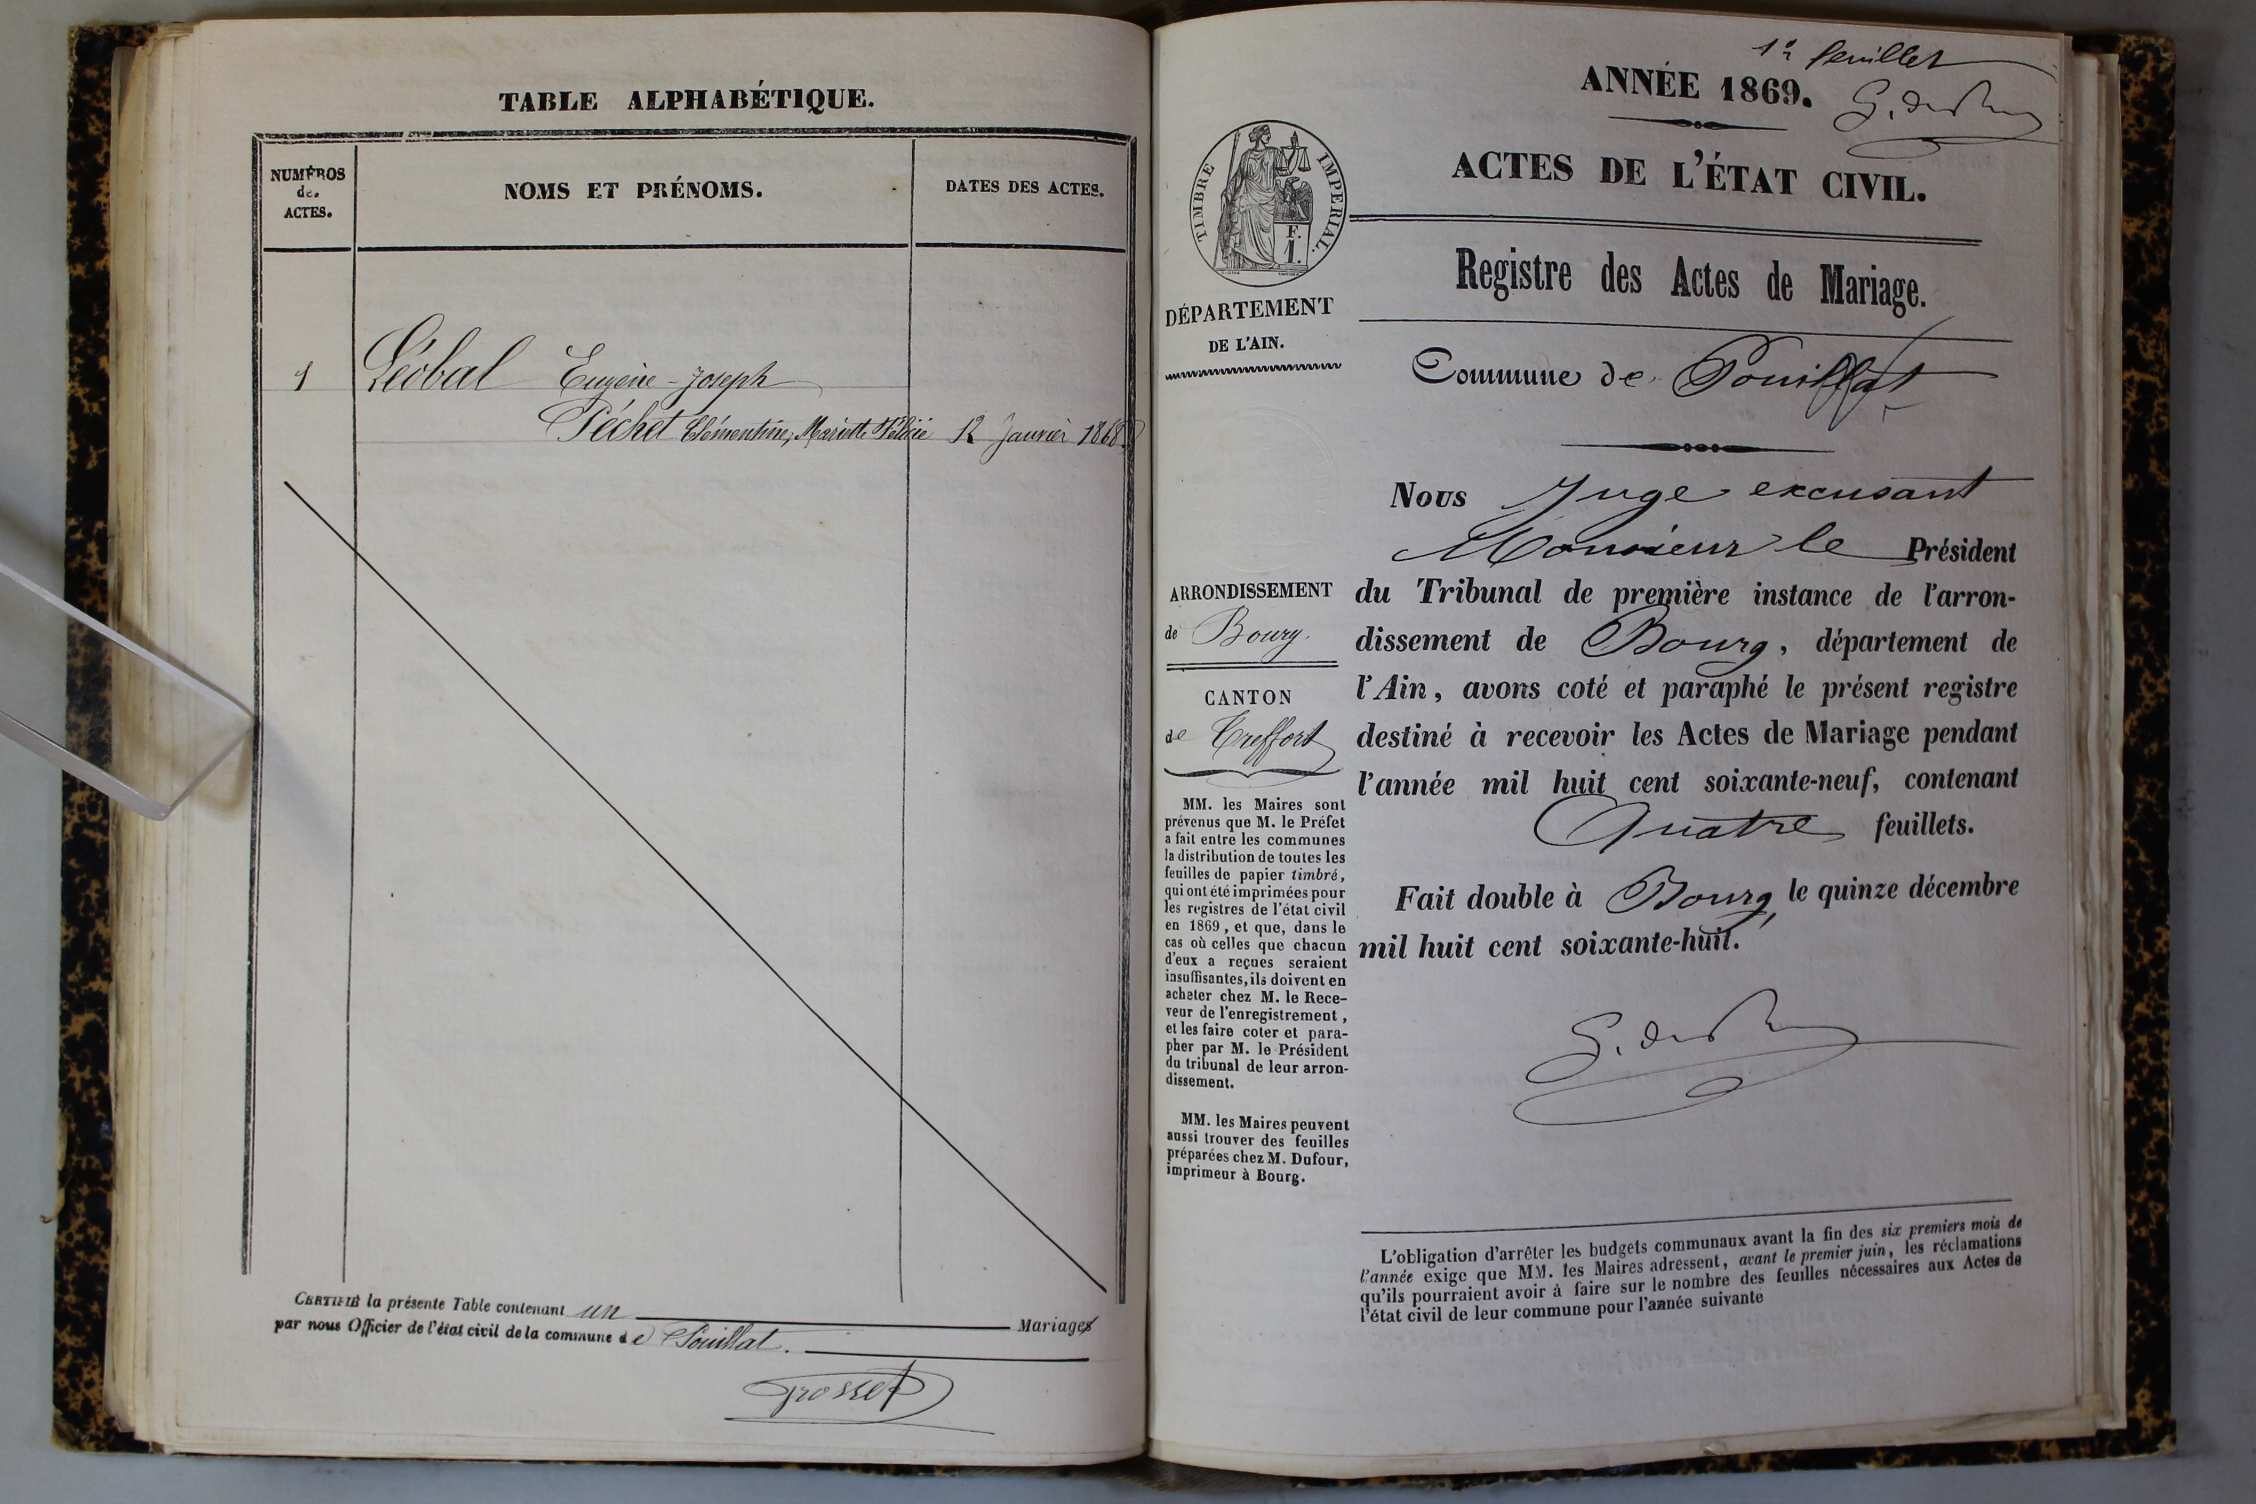 TABLE ALPHABÉTIQUE.
NUMÉROS
de.
ACTES.
NOMS ET PRÉNOMS.
DATES DES ACTES.
1 Léobal Eugène-Joseph
Péchet Clémentine, Mariette Félicie 12 Janvier 1868
CERTIFIÉ la présente Table contenant un Mariages
par nous Officier de l'état civil de la commune de Pouillat.
Grosset
1er feuillet
ANNÉE 1869.
ACTES DE L'ÉTAT CIVIL.
TIMBRE IMPERIAL.
F.
1.
Registre des Actes de Mariage.
DÉPARTEMENT
DE L'AIN.
Commune de Pouillat
Nous Juge excusant
Monsieur le Président
du Tribunal de première instance de l'arron-
dissement de Bourg, département de
l'Ain, avons coté et paraphé le présent registre
destiné à recevoir les Actes de Mariage pendant
l'année mil huit cent soixante-neuf, contenant
Quatre feuillets.
Fait double à Bourg, le quinze décembre
mil huit cent soixante-huit.
ARRONDISSEMENT
de Bourg.
CANTON
de Treffort
MM. les Maires sont
prévenus que M. le Préfet
a fait entre les communes
la distribution de toutes les
feuilles de papier timbré,
qui ont été imprimées pour
les registres de l'état civil
en 1869, et que, dans le
cas où celles que chacun
d'eux a reçues seraient
insuffisantes, ils doivent en
acheter chez M. le Rece-
veur de l'enregistrement,
et les faire coter et para-
pher par M. le Président
du tribunal de leur arron-
dissement.
MM. les Maires peuvent
aussi trouver des feuilles
préparées chez M. Dufour,
imprimeur à Bourg.
L'obligation d'arrêter les budgets communaux avant la fin des six premiers mois de
l'année exige que MM. les Maires adressent, avant le premier juin, les réclamations
qu'ils pourraient avoir à faire sur le nombre des feuilles nécessaires aux Actes de
l'état civil de leur commune pour l'année suivante